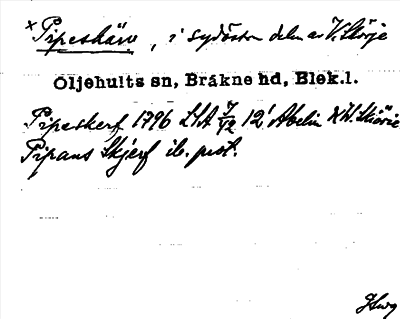 × Pipeskärv, i sydöstra delen av V. Skörje
Öljehults sn, Bräkne hd, Blek.l.
Pipeskerf 1796 LSA 7/V2 12' Abelin XW. Skiörie
Pipans Skjerf ib. prot.